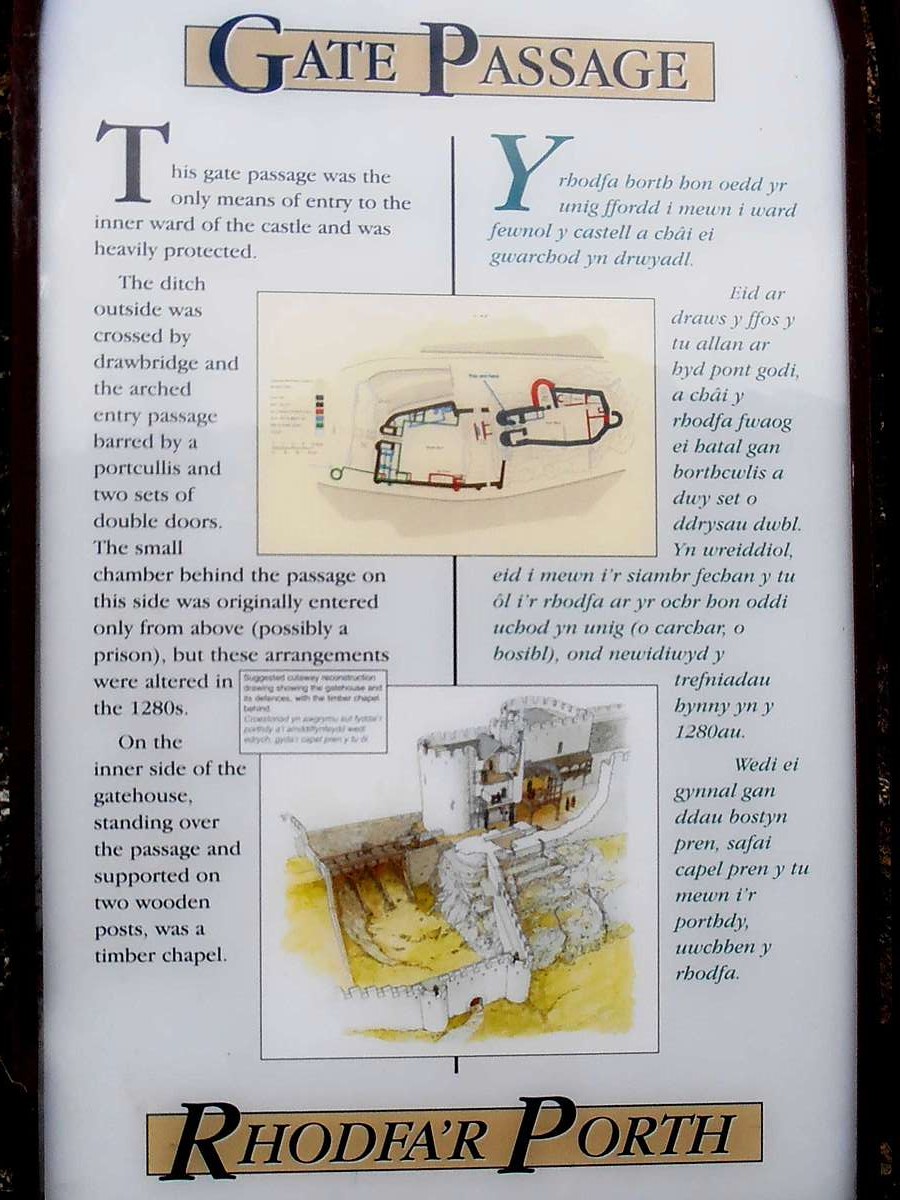 GATE PASSAGE
This gate passage was the
only means of entry to the
inner ward of the castle and was
heavily protected.
The ditch
outside was
crossed by
drawbridge and
the arched
entry passage
barred by a
portcullis and
two sets of
double doors.
The small
chamber behind the passage on
this side was originally entered
only from above (possibly a
prison), but these arrangements
were altered in
the 1280s.
On the
inner side of the
gatehouse,
standing over
the passage and
supported on
two wooden
posts, was a
timber chapel.
Suggested cutaway reconstruction
drawing showing the gatehouse and
its defences, with the timber chapel
behind.
Y rhodfa borth hon oedd yr
unig ffordd i mewn i ward
fewnol y castell a châi ei
gwarchod yn drwyadl.
Eid ar
draws y ffos y
tu allan ar
hyd pont godi,
a châi y
rhodfa fwaog
ei hatal gan
borthcwlis a
dwy set o
ddrysau dwbl.
Yn wreiddiol,
eid i mewn i'r siambr fechan y tu
ôl i'r rhodfa ar yr ochr hon oddi
uchod yn unig (o carchar, o
bosibl), ond newidiwyd y
trefniadau
hynny yn y
1280au.
Wedi ei
gynnal gan
ddau bostyn
pren, safai
capel pren y tu
mewn i'r
porthdy,
uwchben y
rhodfa.
RHODFA'R PORTH